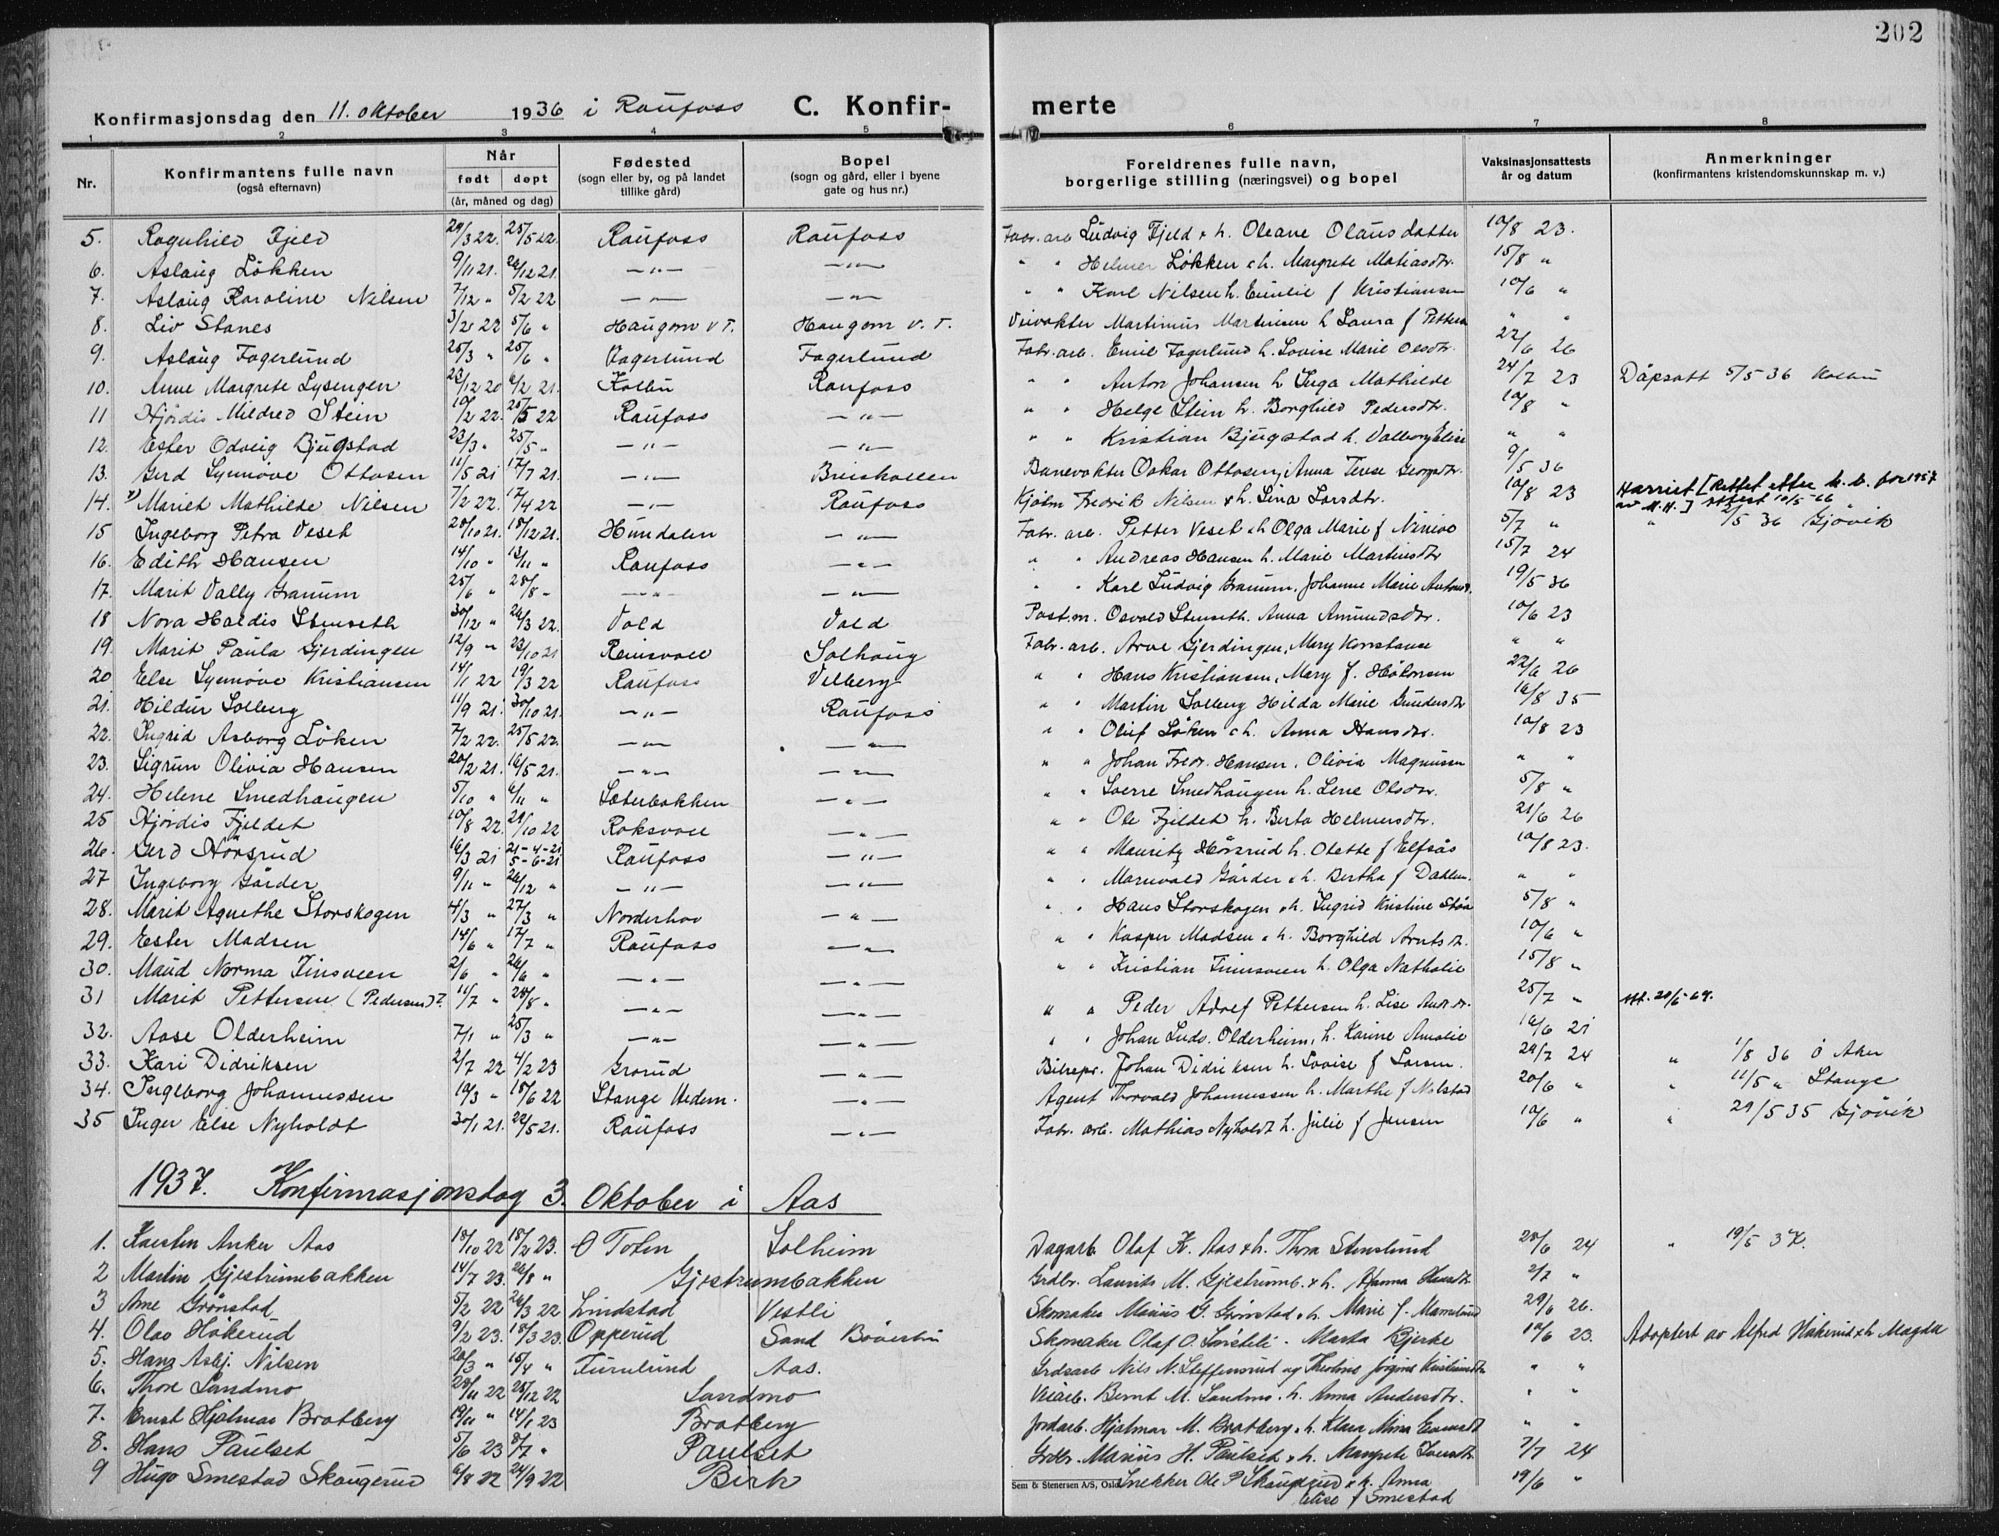 202
Konfirmasjonsdag den 11. oktober 1936 i Raufoss C. Konfirmerte
1 2 3 4 5 6 7 8
Nr. Konfirmantens fulle navn (også efternavn) Når født døpt (år, måned og dag) Fødested (sogn eller by, og på landet tillike gård) Bopel (sogn og gård, eller i byene gate og hus nr.) Foreldrenes fulle navn, borgerlige stilling (næringsvei) og bopel Vaksinasjonsattests år og datum Anmerkninger (konfirmantens kristendomskunnskap m. v.)
5. Ragnhild Fjeld 29/3 22. 25/5 22. Raufoss Raufoss Fabr. arb. Ludvig Fjeld & h. Oleane Olausdatter 10/8 23.
6. Aslaug Løkken 9/11 21. 26/12 21. —„— —„— „ „ Helmer Løkken & h. Margrete Matiasdtr. 15/8 „
7. Aslaug Karoline Nilsen 7/12 „ 5/2 22 —„— —„— „ „ Karl Nilsen h. Emilie f Kristiansen 10/6 „
8. Liv Stanes 3/2 22 5/6 „ Haugom V.T. Haugom V.T. Veivokter Martinius Martinsen h Laura f Petters „ „
9. Aslaug Fagerlund 25/3 „ 25/6 „ Fagerlund Fagerlund Fabr. arb. Emil Fagerlund h. Lovise Marie Olsdtr. 22/6 26
10. Anne Margrete Lysengen 23/12 20 6/2 21. Kolbu Raufoss „ „ Anton Johansen h Inga Mathilde 24/7 23 Dåpsatt 5/5 36 Kolbu
11 Hjördis Mildred Stein 10/2 22. 25/5 22 Raufoss —„— „ „ Helge Stein h. Borghild Pedersdtr. 10/8 „
12. Ester Odveig Bjugstad 22/3 „ 25/5 „ —„— —„— „ „ Kristian Bjugstad h. Valborg Elise „ „
13. Gerd Synnöve Ottosen 11/5 21 17/7 21. —„— Breiskallen Banevokter Oskar Ottosen, Anna Terese Georgsdtr. 9/5 36
14. Mariet Mathilde Nilsen 7/2 22. 17/4 22 —„— Raufoss Kjølm Fredrik Nilsen & h. Lina Larsdtr. 10/8 23 Harriet [Rettet etter k. b. for 1957 av M.H.] Attest 10/5-66
15 Ingeborg Petra Veset 28/10 21. 18/12 21. Hundalen —„— Fabr. arb. Petter Veset & h Olga Marie f Ninive 5/7 „ „ 2/5 36 Gjövik
16. Edith Hansen 14/10 „ 13/11 „ Raufoss —„— „ „ Andreas Hansen h. Marie Martinsdtr 15/7 24
17. Marit Vally Granum 25/6 „ 28/8 „ —„— —„— „ „ Karl Ludvig Granum, Johanne Marie Antonsd. 19/5 36
18 Nora Haldis Stenseth 30/12 „ 26/3 22. Vold Vold Postm. Osvald Stenseth. Anna Amundsdtr. 10/6 23
19. Marit Paula Gjerdingen 12/9 „ 23/10 21 Reinsvoll Solhaug Fabr. arb. Arve Gjerdingen, Mary Konstanse „ „
20 Else Synnöve Kristiansen 14/1 22 19/3 22 Raufoss Velberg „ „ Hans Kristiansen, Mary f. Håkonsen 22/6 26
21. Hildur Solberg 11/9 21. 30/10 21. —„— Raufoss „ „ Martin Solberg Hilda Marie Gundersdtr 16/8 35
22. Ingrid Asborg Löken 7/2 22. 25/5 22. —„— —„— „ „ Oluf Löken & h. Anna Hansdtr. 10/8 23
23. Sigrun Olivia Hansen 20/2 21. 16/5 21. —„— —„— „ „ Johan Fredr. Hansen, Olivia Magnussen „ „
24. Helene Smedhaugen 5/10 „ 6/11 „ Sæterbakken —„— „ „ Sverre Smedhaugen h. Lene Olsdtr. 5/8 „
25 Hjördis Fjeldet 10/8 22. 29/10 22 Roksvoll —„— „ „ Ole Fjeldet h. Berta Helmersdtr. 21/6 26
26. Gerd Hörsrud 16/3 21 21-4-21 5-6-21 Raufoss —„— „ „ Mauritz Hörsrud h. Olette f Elfsås 10/8 23.
27 Ingeborg Gårder 9/11 „ 26/12 „ —„— —„— „ „ Marnvald Gårder & h. Bertha f Dahlen. „ „
28. Marit Agnethe Storskogen 4/3 „ 27/3 „ Norderhov —„— „ „ Hans Storskogen & h. Ingrid Kristine Stöa 5/8 „
29. Ester Madsen 14/6 „ 17/7 „ Raufoss —„— „ „ Kasper Madsen & h. Borghild Arntsd. 10/6 „
30. Maud Norma Finsveen 2/6 „ 26/6 „ —„— —„— „ „ Kristian Finnsveen h. Olga Nathalie 15/8 „
31 Marit Pettersen (Pedersen)? 11/7 „ 28/8 „ —„— —„— „ „ Peder Adolf Pettersen h. Lise Andr.dr. 25/7 „ Att. 20/6-64.
32. Aase Olderheim 7/1 „ 25/3 „ —„— —„— „ „ Johan Ludv. Olderheim, h. Karine Amalie 16/6 21
33. Kari Didriksen 2/7 22 4/2 23 Grorud —„— Bilrepr. Johan Didriksen h Lovise f Larsen. 29/7 24 „ 1/8 36 Ö Aker
34. Ingeborg Johannessen 10/3 „ 18/6 22 Stange Hedm. —„— Agent Thorvald Johannessen h Marthe f Nilstad 20/6 „ „ 11/5 „ Stange
35 Inger Else Nyholdt 30/1 21. 22/5 21. Raufoss —„— Fabr. arb. Mathias Nyholdt h. Julie f Jensen 10/6 „ „ 29/5 35 Gjövik
1937. Konfirmasjonsdag 3. Oktober i Aas
1. Karsten Anker Aas 18/10 22 18/2 23. Ö Toten Solheim Dagarb. Olaf K. Aas & h. Thora Stenslund 28/6 24 „ 19/5 37.
2 Martin Gjestrumbakken 14/7 23. 26/8 „ Gjestrumbakken Grdbr. Laurits M. Gjestrumb. & h. Hanna Olsensdtr 2/7 „
3 Arne Grönstad 5/2 22 26/3 22 Lindstad Vestli Skomaker Marius G. Grönstad & h. Marie f. Marmelund 29/6 26.
4. Olav Håkerud 9/2 23. 18/3 23. Opperud Sand Böverbru Skomaker Olaf O. Sörsteli. Marta Bjerke 10/6 23. Adoptert av Alfred Håkerud & h Magda
5. Hans Asbj. Nilsen 20/3 „ 15/4 „ Furulund Aas. Grdsarb Nils N. Steffensrud og Thestine Jörgine Kristiansdtr „ „
6. Thore Sandmo 28/11 22 25/12 22 Sandmo Veiarb. Bernt M. Sandmo. h. Anna Andersdtr. „ „
7. Ernst Hjalmar Bratberg 19/11 „ 14/1 23 Bratberg Jordarb. Hjalmar M. Bratberg & h. Klara Mina Evensdt „ „
8. Hans Paulset 5/6 23 8/7 „ Paulset Grdbr. Marius H. Paulset & h. Margrete Iversdtr 7/7 24
9 Hugo Smestad Skaugerud 6/8 22 24/9 22 Birk Snekker Ole P Skaugerud & h. Anna Elise f Smestad 19/6 „
Sem & Stenersen A/S, Oslo